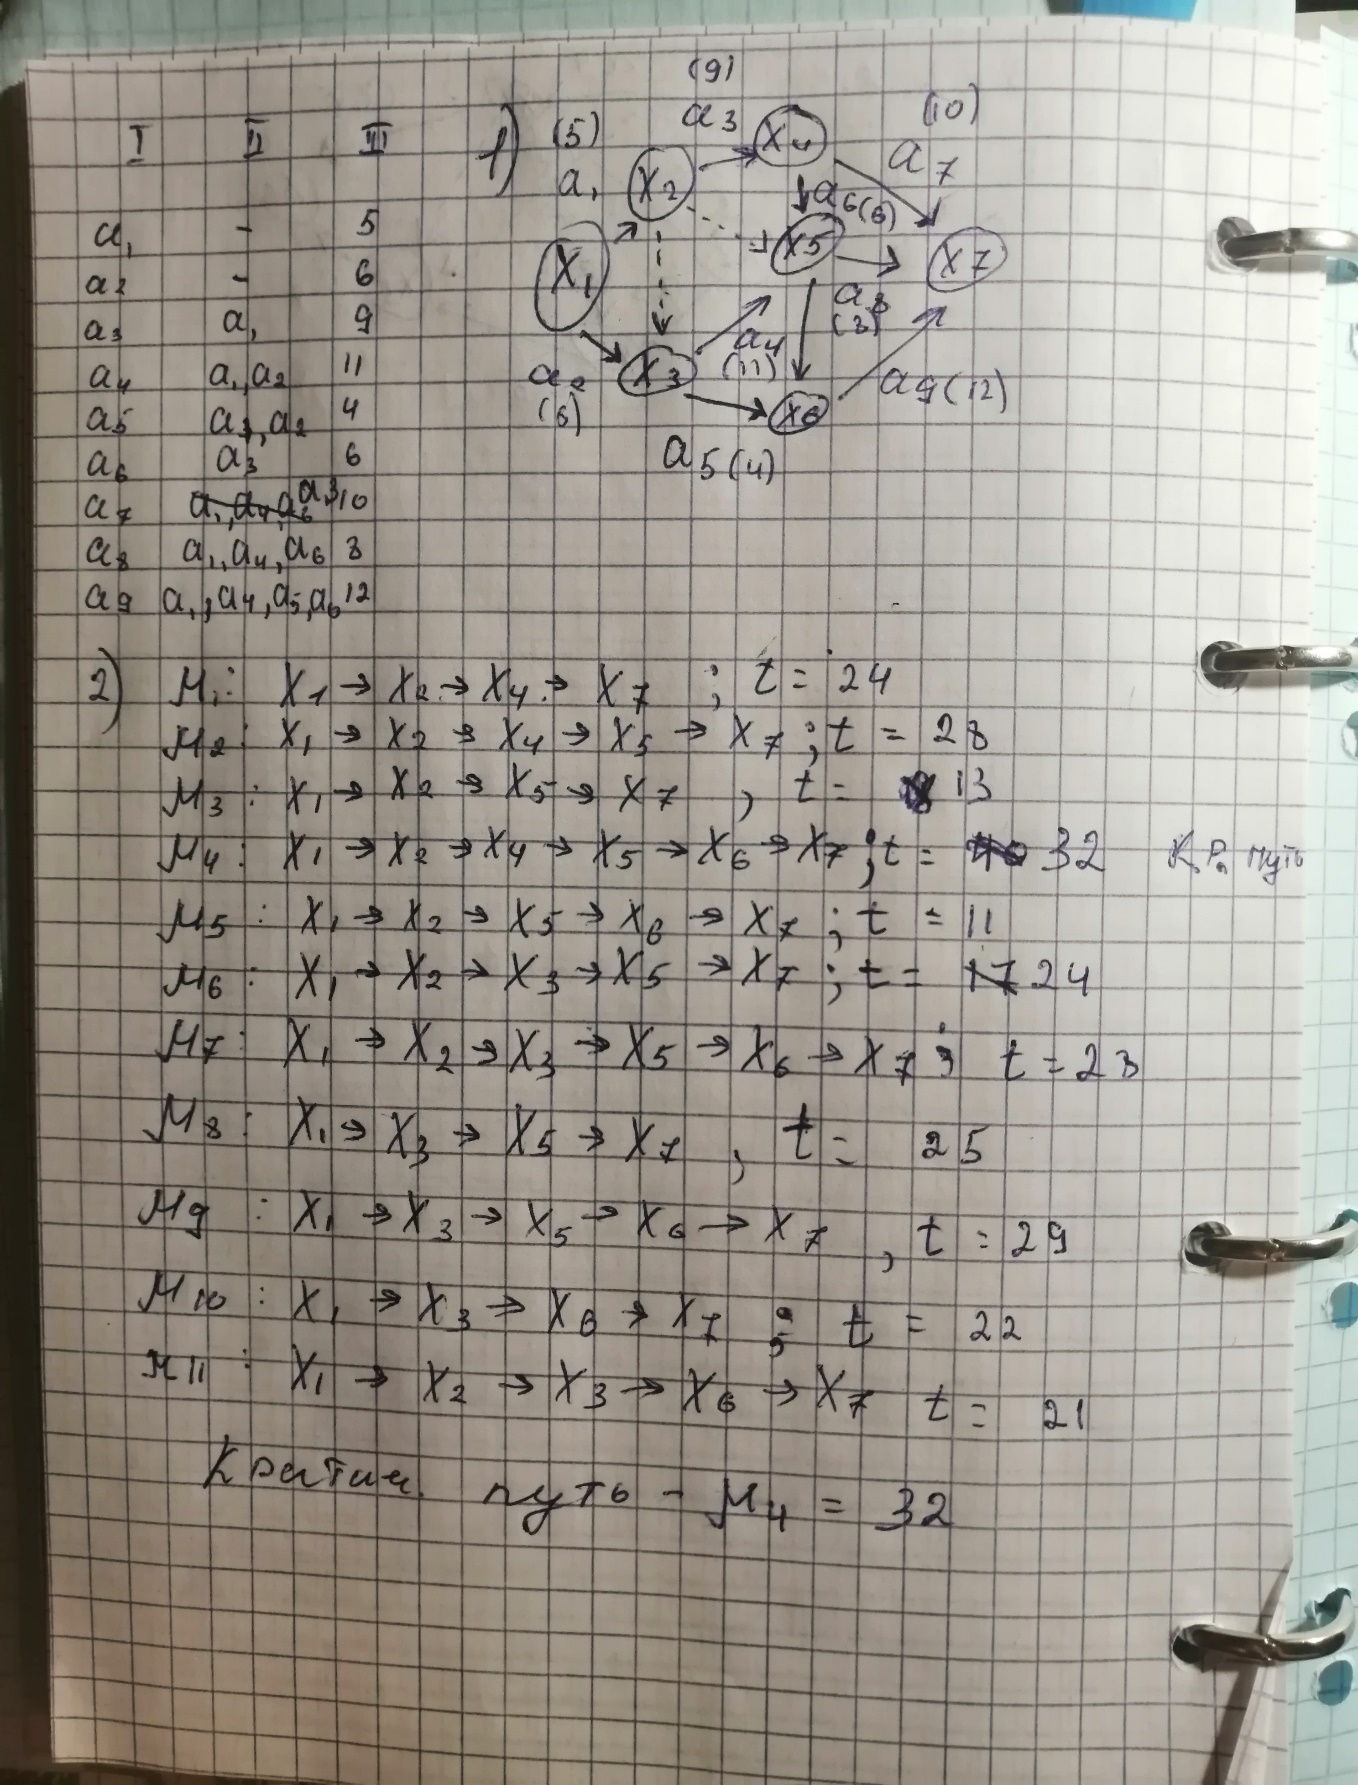 I II III
a1 - 5
a2 - 6
a3 a1 9
a4 a1, a2 11
a5 a1, a2 4
a6 a3 6
a7 a3 10
a8 a1, a4, a6 8
a9 a1, a4, a5, a6 12
1) (5) (9) (10)
a1 X2 a3 X4 a7
X1 X5 a6(6) X7
a2 (6) X3 a4 (11) a8 (8)
X6 a9(12)
a5(4)
2) M1: X1 → X2 → X4 → X7 ; t = 24
M2: X1 → X2 → X4 → X5 → X7 ; t = 28
M3: X1 → X2 → X5 → X7 , t = 13
M4: X1 → X2 → X4 → X5 → X6 → X7 ; t = 32 Кр. путь
M5: X1 → X2 → X5 → X6 → X7 ; t = 11
M6: X1 → X2 → X3 → X5 → X7 ; t = 24
M7: X1 → X2 → X3 → X5 → X6 → X7 ; t = 28
M8: X1 → X3 → X5 → X7 , t = 25
M9: X1 → X3 → X5 → X6 → X7 , t = 29
M10: X1 → X3 → X6 → X7 ; t = 22
M11: X1 → X2 → X3 → X6 → X7 t = 21
путь - M4 = 32